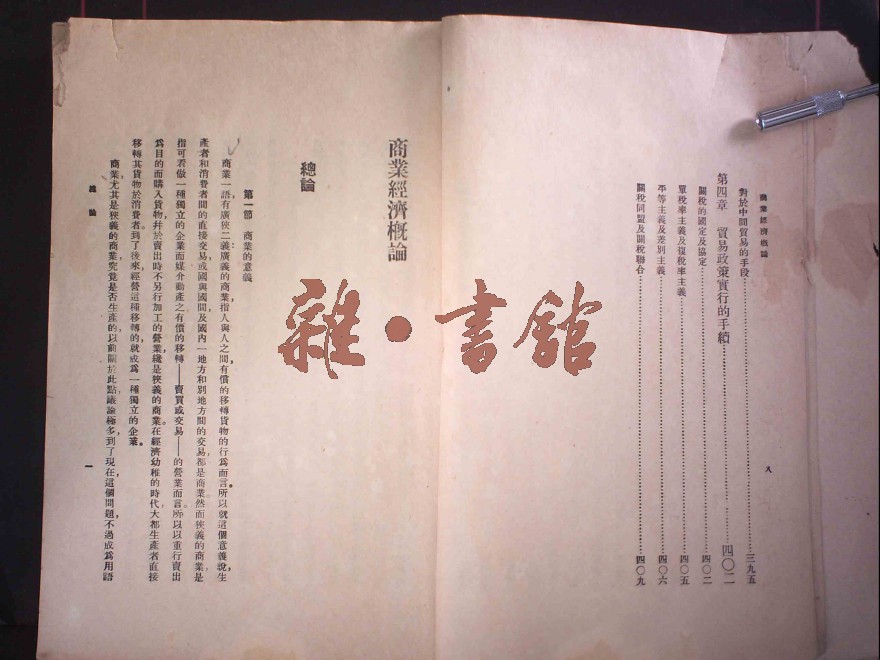 商業經濟概論
對於中間貿易的手段……三九五
第四章　貿易政策實行的手續……四〇二
關稅的國定及協定……四〇二
單稅率主義及複稅率主義……四〇五
平等主義及差別主義……四〇六
關稅同盟及關稅聯合……四〇九
八
雜·書館
商業經濟概論
總論
第一節　商業的意義
商業一語，有廣狹二義：廣義的商業，指人與人之間，有償的移轉貨物的行爲而言。所以就這個意義說，生
產者和消費者間的直接交易，或國與國間及國內一地方和別地方間的交易，都是商業。然而狹義的商業，是
指可看做一種獨立的企業而媒介動產之有償的移轉——賣買或交易——的營業而言。所以以重行賣出
爲目的而購入貨物，幷於賣出時不另行加工的營業，纔是狹義的商業。在經濟幼稚的時代，大都生產者直接
移轉其貨物於消費者。到了後來，經營這種移轉的，就成爲一種獨立的企業。
商業，尤其是狹義的商業，究竟是否生產的，以前關於此點，議論極多，到了現在，這個問題，不過成爲用語
總論
一